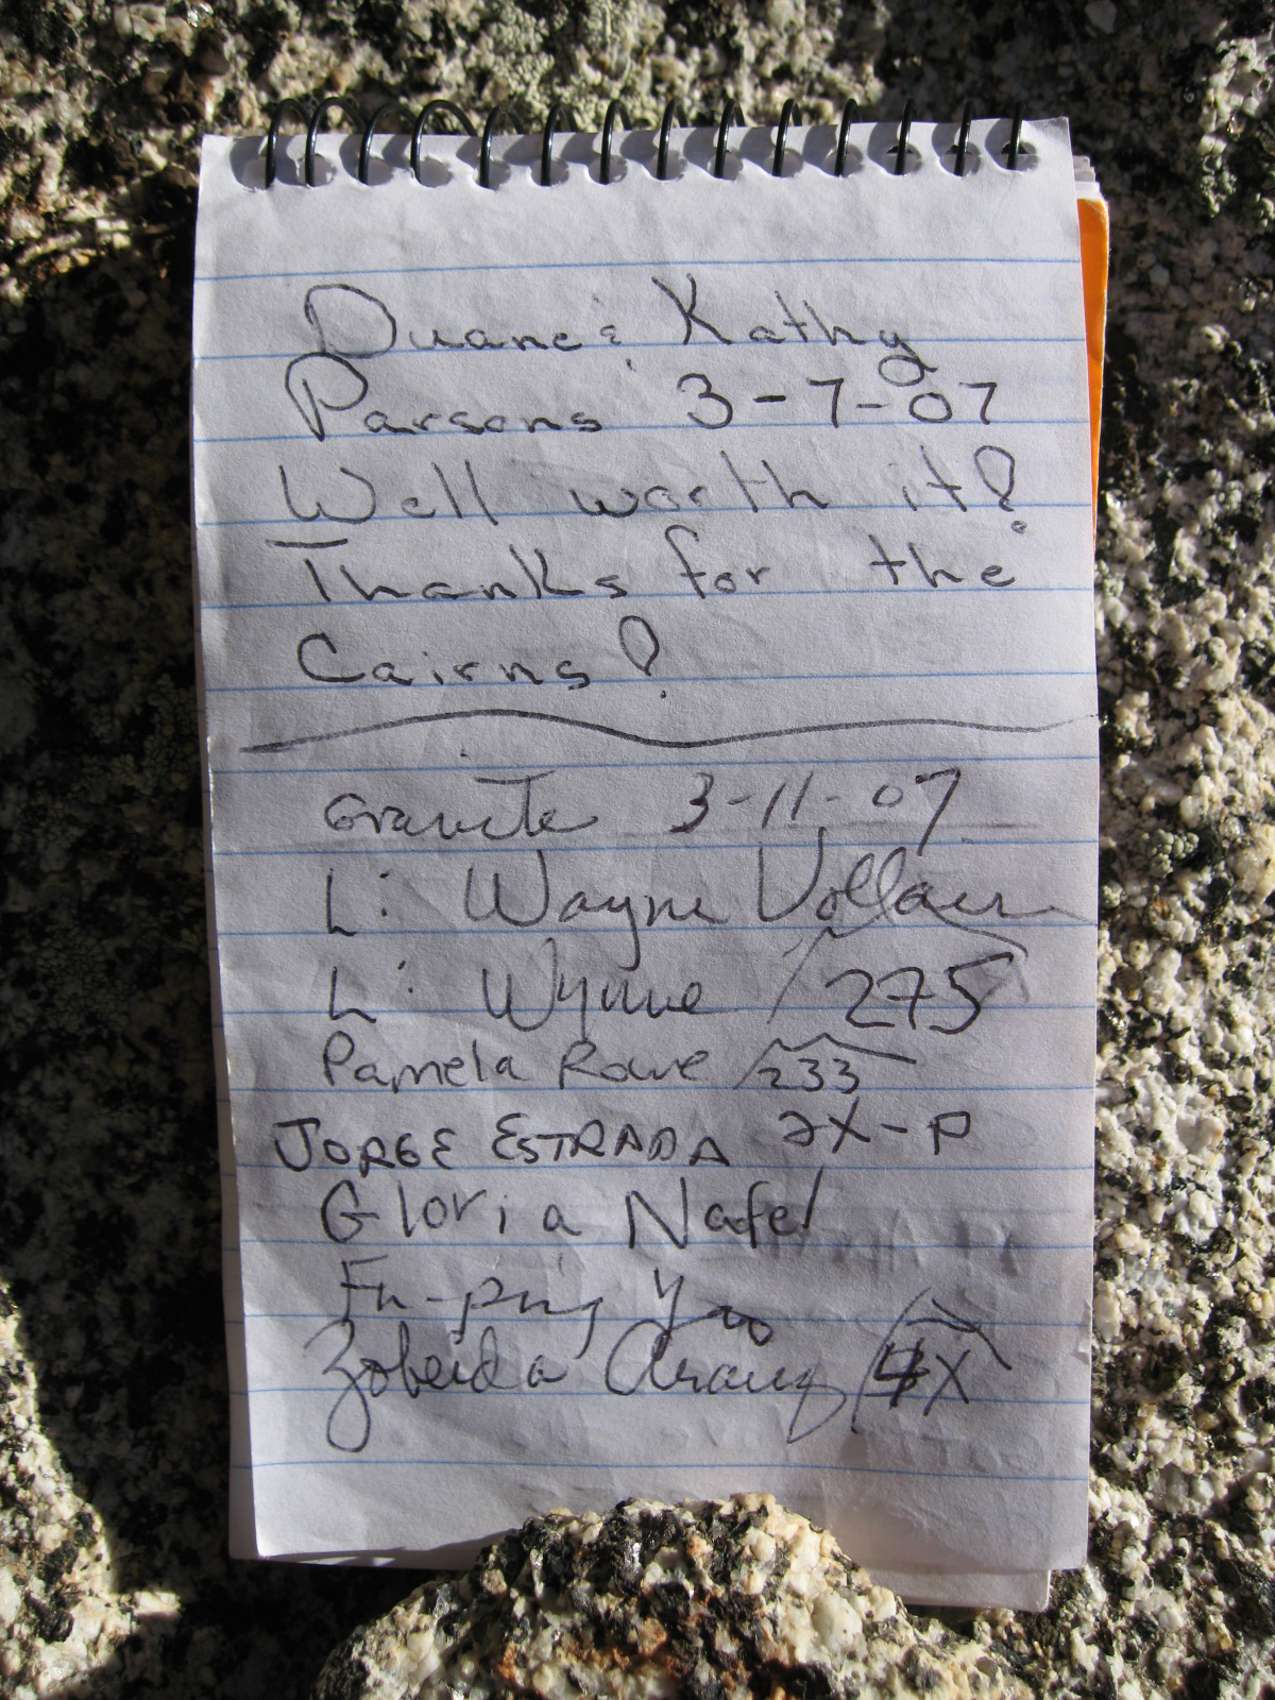 Duane & Kathy
Parsons 3-7-07
Well worth it!
Thanks for the
Cairns!
Granite 3-11-07
L: Wayne Vollaire
L: Wynne /275
Pamela Rowe /233
JORGE ESTRADA 2X-P
Gloria Nafel
Fu-ping Yao
Zobeida Arauz /4X